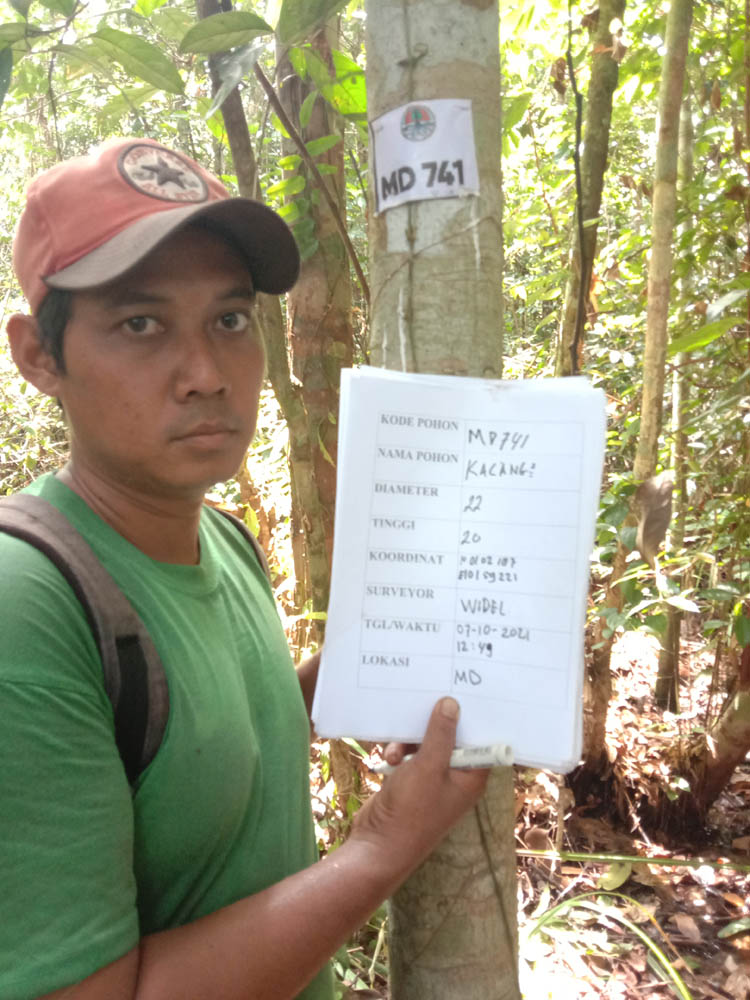 MD 741
KODE POHON MD741
NAMA POHON KACANG²
DIAMETER 22
TINGGI 20
KOORDINAT
SURVEYOR WIDEL
TGL/WAKTU 07-10-2021
12:49
LOKASI MD